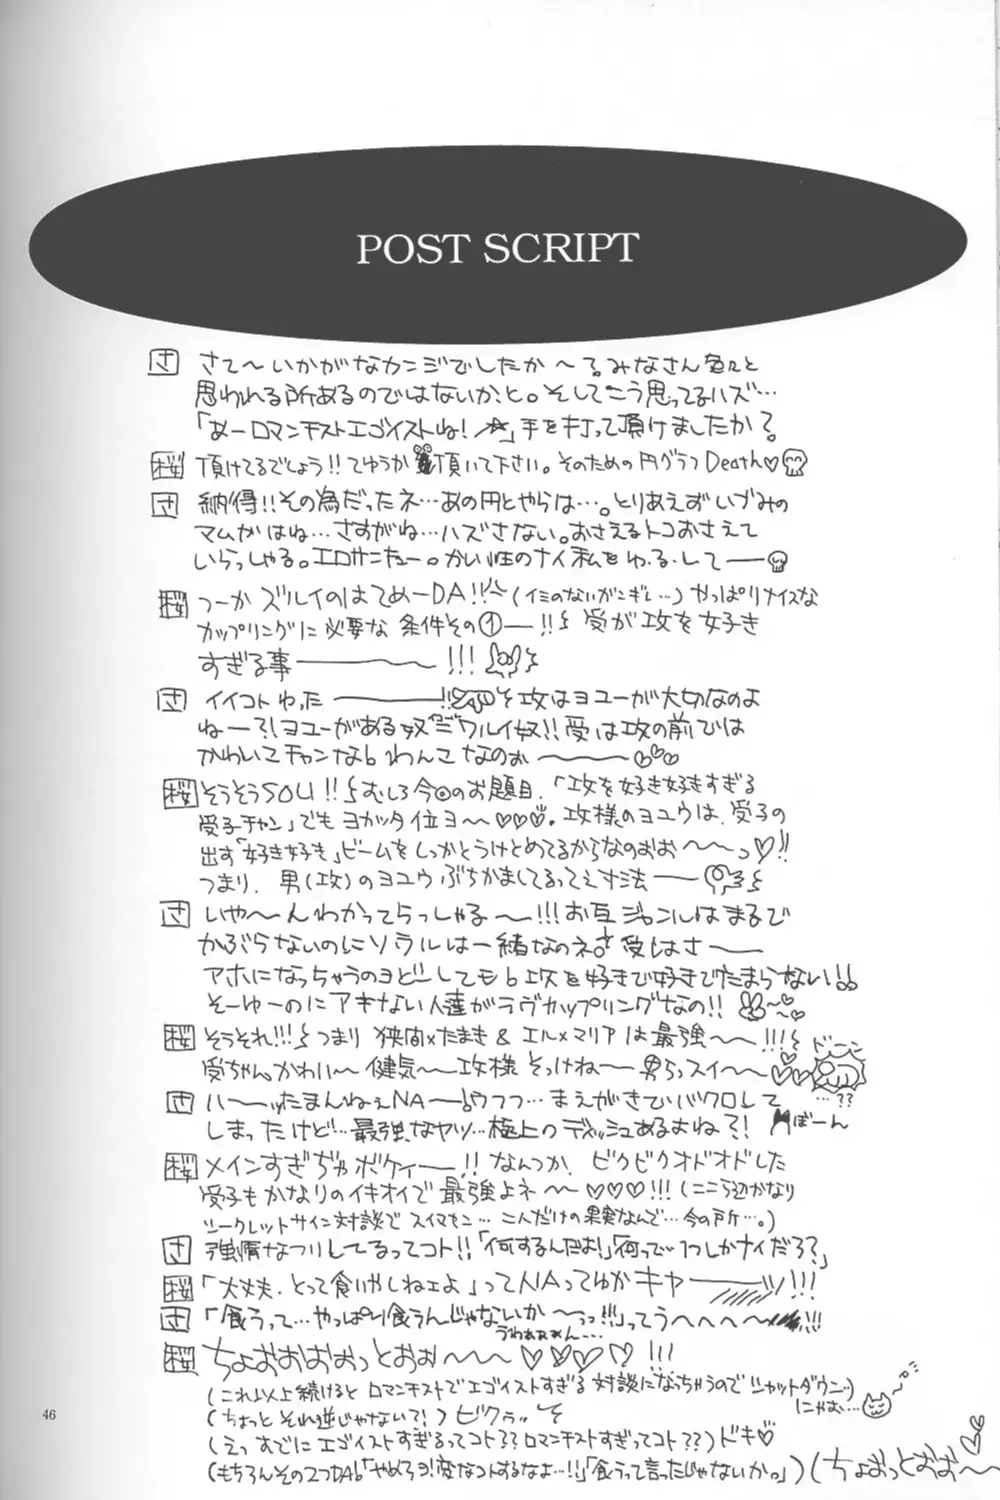 POST SCRIPT
さ さて〜いかがなカンジでしたか〜?みなさん色々と
思われる所あるのではないかと。そしてこう思ってるハズ…
「あーロマンチストエゴイストね!」手を打って頂けましたか?
桜 頂けてるでしょう!!てゆうか頂いて下さい。そのための円グラフDeath♡
さ 納得!!その為だったネ…あの円とやらは…。とりあえずいづみの
マムがはね…さすがね…ハズさない。おさえるトコおさえて
いらっしゃる。エロサンキュー。かい性のナイ私をゆ・る・して――
桜 つーか ズルイのはてめーDA!!(イミのないがンギレ…)やっぱりナイスな
カップリングに必要な 条件その①―!! 受が攻を好き
すぎる事―――〜〜!!!
さ イイコトゆった―――!! そ 攻はヨユーが大切なのよ
ねー?!ヨユーがある奴=ワルイ奴!!受は攻の前では
かわいこチャンなわんこなのぉ〜〜♡♡♡
桜 そうそうSOU!!むしろ今回のお題目、「攻を好き好きすぎる
受子チャン」でもヨカッタ位ヨ〜♡♡♡。攻様のヨユウは、受子の
出す「好き好き」ビームをしっかとうけとめてるからなのぉぉ〜〜っ♡!!
つまり、男(攻)のヨユウぶちかましてるってえ寸法――
さ いや〜んわかってらっしゃる〜!!!お互ジャンルはまるで
かぶらないのにソウルは一緒なのネ。受しはさ――
アホになっちゃうのヨどーしても。攻を好きで好きでたまらない!!
そーゆーのにアキない人達がラヴカップリングなの!!♡
桜 そうそれ!!!つまり 狭間×たまき & エル×マリア は最強〜〜!!!ドーン
受ちゃんかわい〜健気〜攻様そっけね〜男らっスイ〜〜♡♡ …??
さ ハーッたまんねぇNA―!ウフフ…まえがきでバクロして
しまったけど…最強なヤツ…極上のディッシュあるよね?! ぼーん
桜 メインすぎぢゃボケィー!!なんつか、ビクビクオドオドした
受子もかなりのイキオイで最強よネ〜♡♡♡!!!(ここら辺かなり
シークレットサイン対談でスイマセン…二人だけの果実なんで…今の所…。)
さ 強情なフリしてるってコト!!「何するんだよ!」「何って…1つしかナイだろ?」
桜 「大丈夫、とって食いやしねェよ」ってNAってゆかキャ――ッ!!!
さ 「食うって…やっぱり食うんじゃないか〜っっ!!!」ってうへへへへ〜!!!
うわぁぁぁん…
桜 ちょおおおおっとおぉ〜〜〜♡♡♡♡!!!
(これ以上続けるとロマンチストでエゴイストすぎる対談になっちゃうのでシャットダウン…)
にゃお…
(ちょっとそれ逆じゃない?!)ビクゥッ
(えっすでにエゴイストすぎるってコト??ロマンチストすぎってコト??)ドキ♡
(もちろんその2つDA!「やめろヨ!変なコトするなよ…!!」「食うって言ったじゃないか。」)(ちょおっとおお〜〜
46